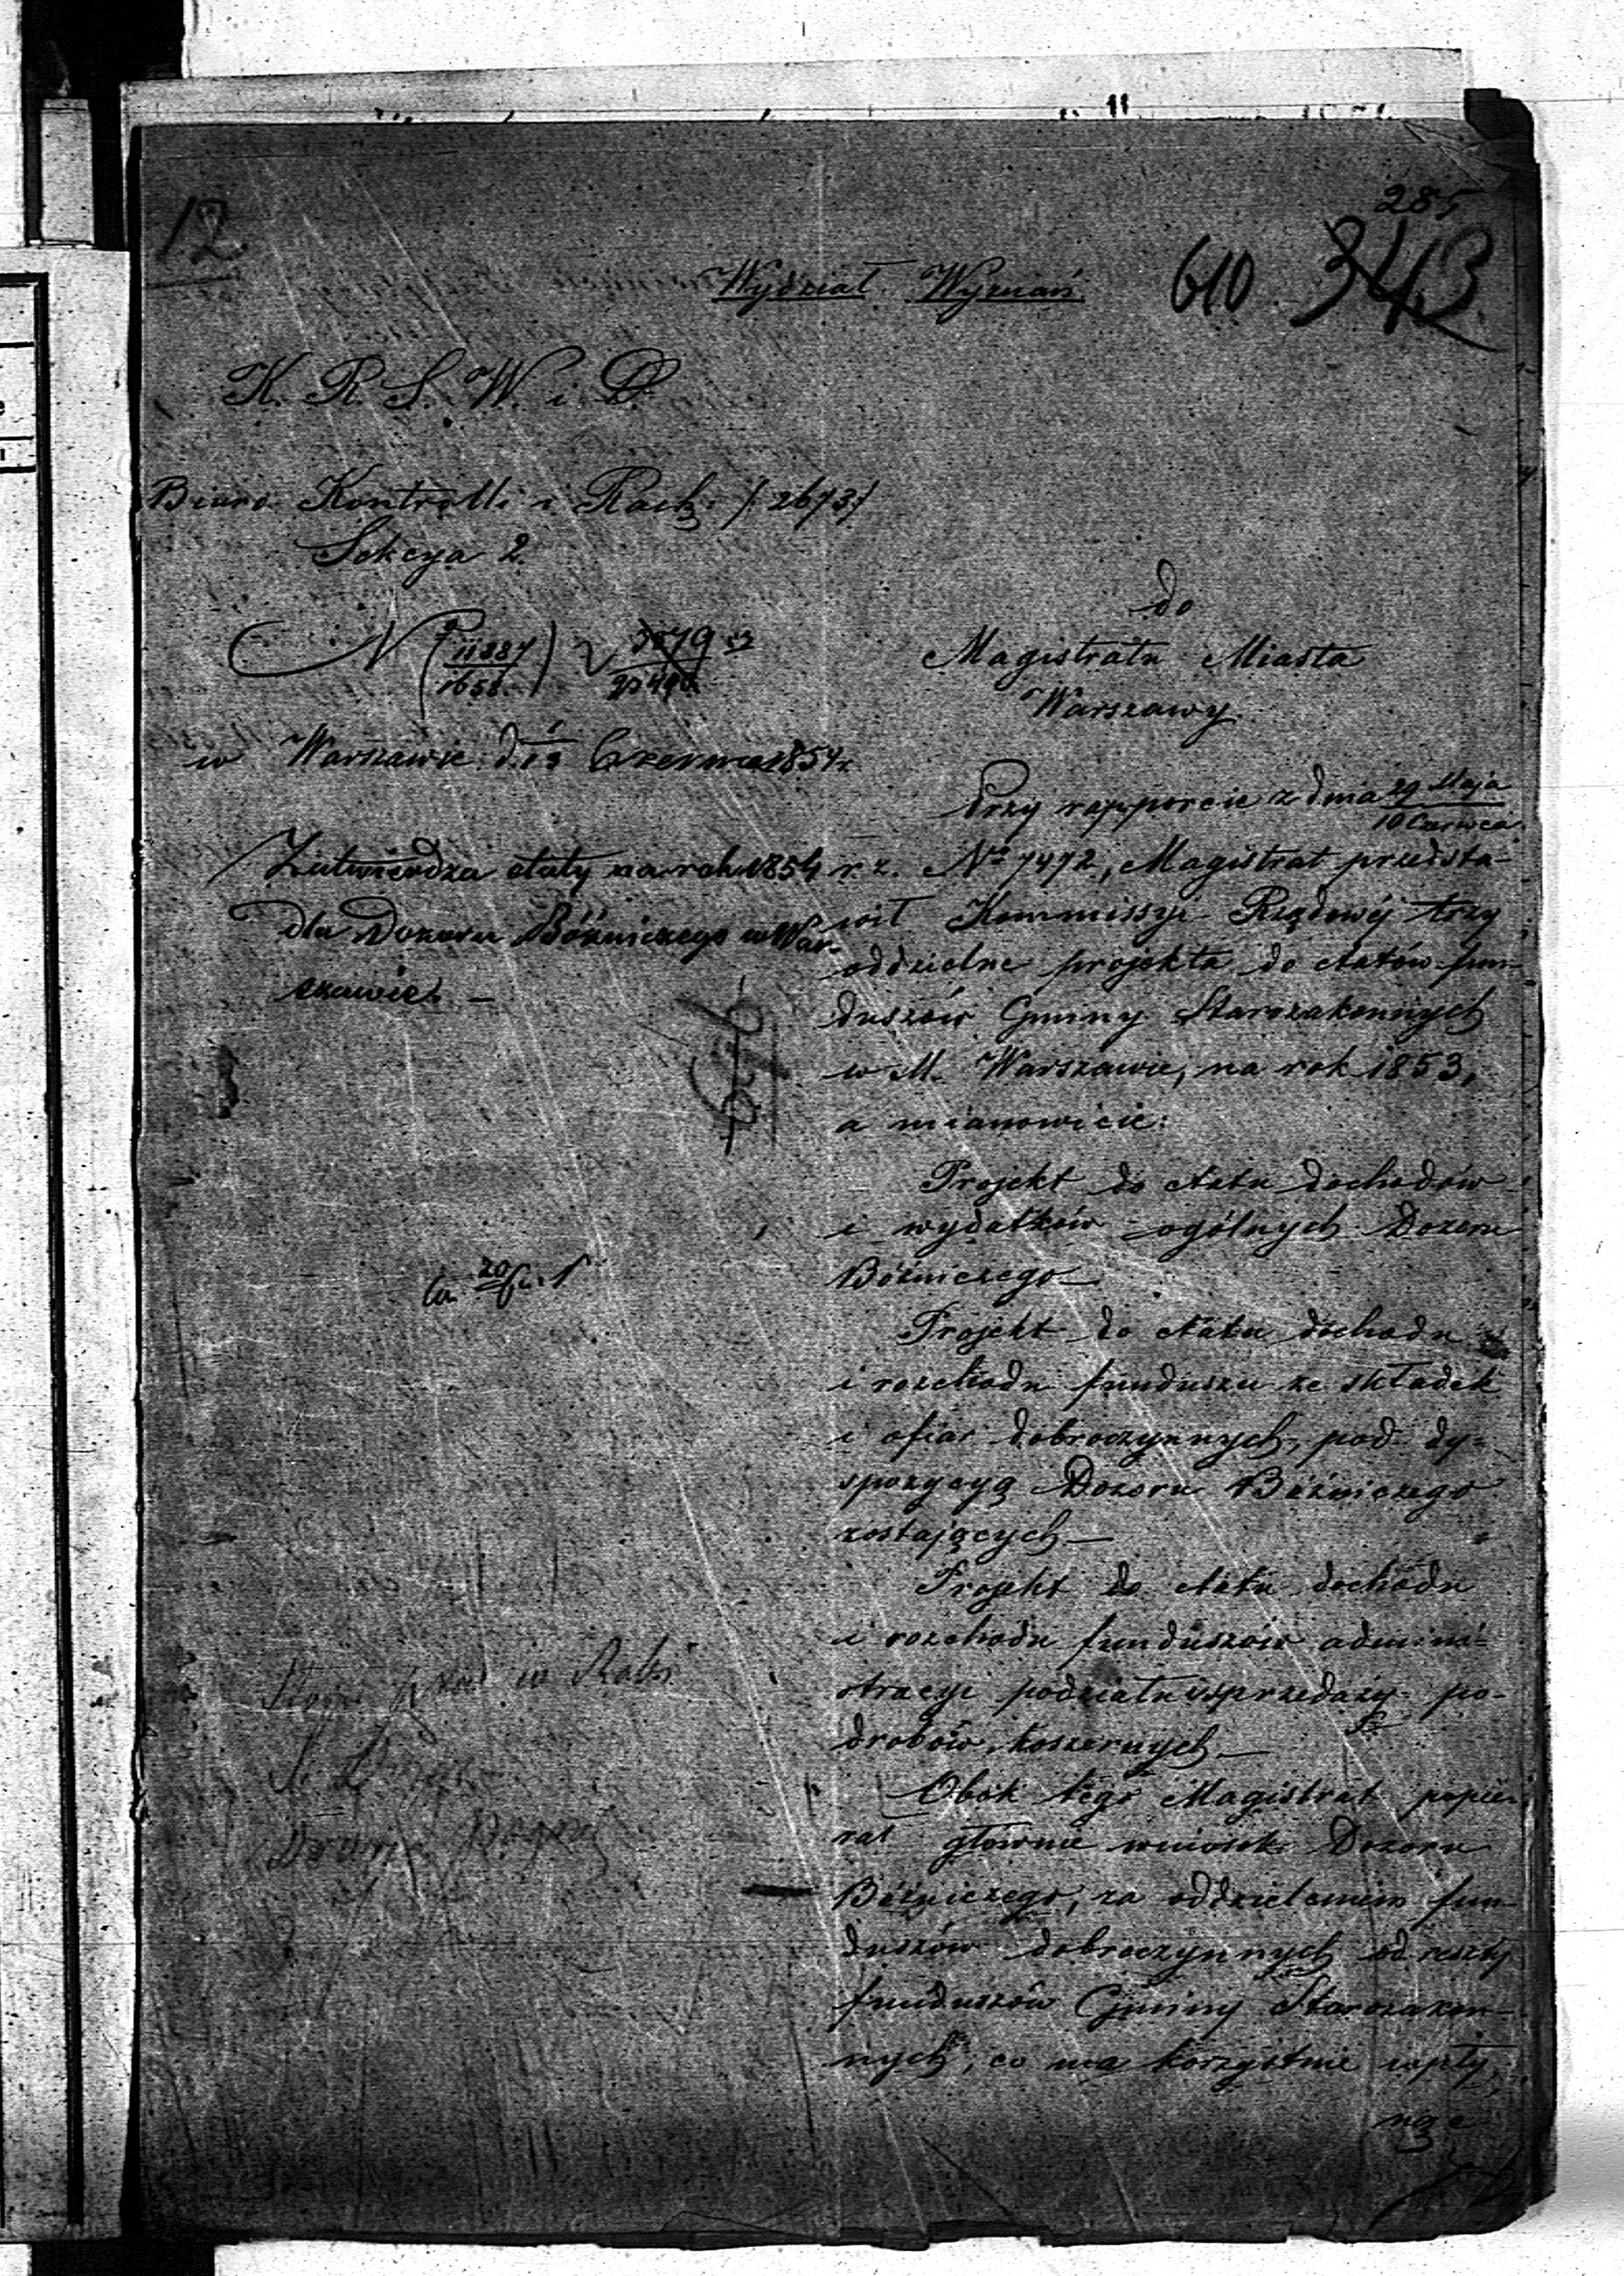 12
285
610 343
Wydział Wyznań
K. R. S. W. i D.
Biuro Kontrolli i Rach: /2673/
Sekcya 2.
N 11887
do
Magistratu Miasta
Warszawy
w Warszawie d. 1/13 Czerwca 1854 r.
Przy rapporcie z dnia 29 Maja
10 Czerwca
Zatwierdza etaty na rok 1854
dla Dozoru Bóżniczego w War-
szawie. —
r. z. No 7472, Magistrat przedsta-
wił Kommissyi Rządowéj trzy
oddzielne projekta do etatów fun-
duszów Gminy Starozakonnych
w M. Warszawie, na rok 1853,
a mianowicie:
Projekt do etatu dochodów
i wydatków ogólnych Dozoru
Bóźniczego —
Projekt do etatu dochodu
i rozchodu funduszu ze składek
i ofiar dobroczynnych, pod dy-
spozycyą Dozoru Bóźniczego
zostających —
Projekt do etatu dochodu
i rozchodu funduszów admini-
stracyi podziału i sprzedaży po-
drobów koszernych. —
Obok tego Magistrat popie-
rał głównie wniosek Dozoru
Bóźniczego, za oddzieleniem fun-
duszów dobroczynnych od reszty
funduszów Gminy Starozakon-
nych, co ma korzystnie wpły-
nąć